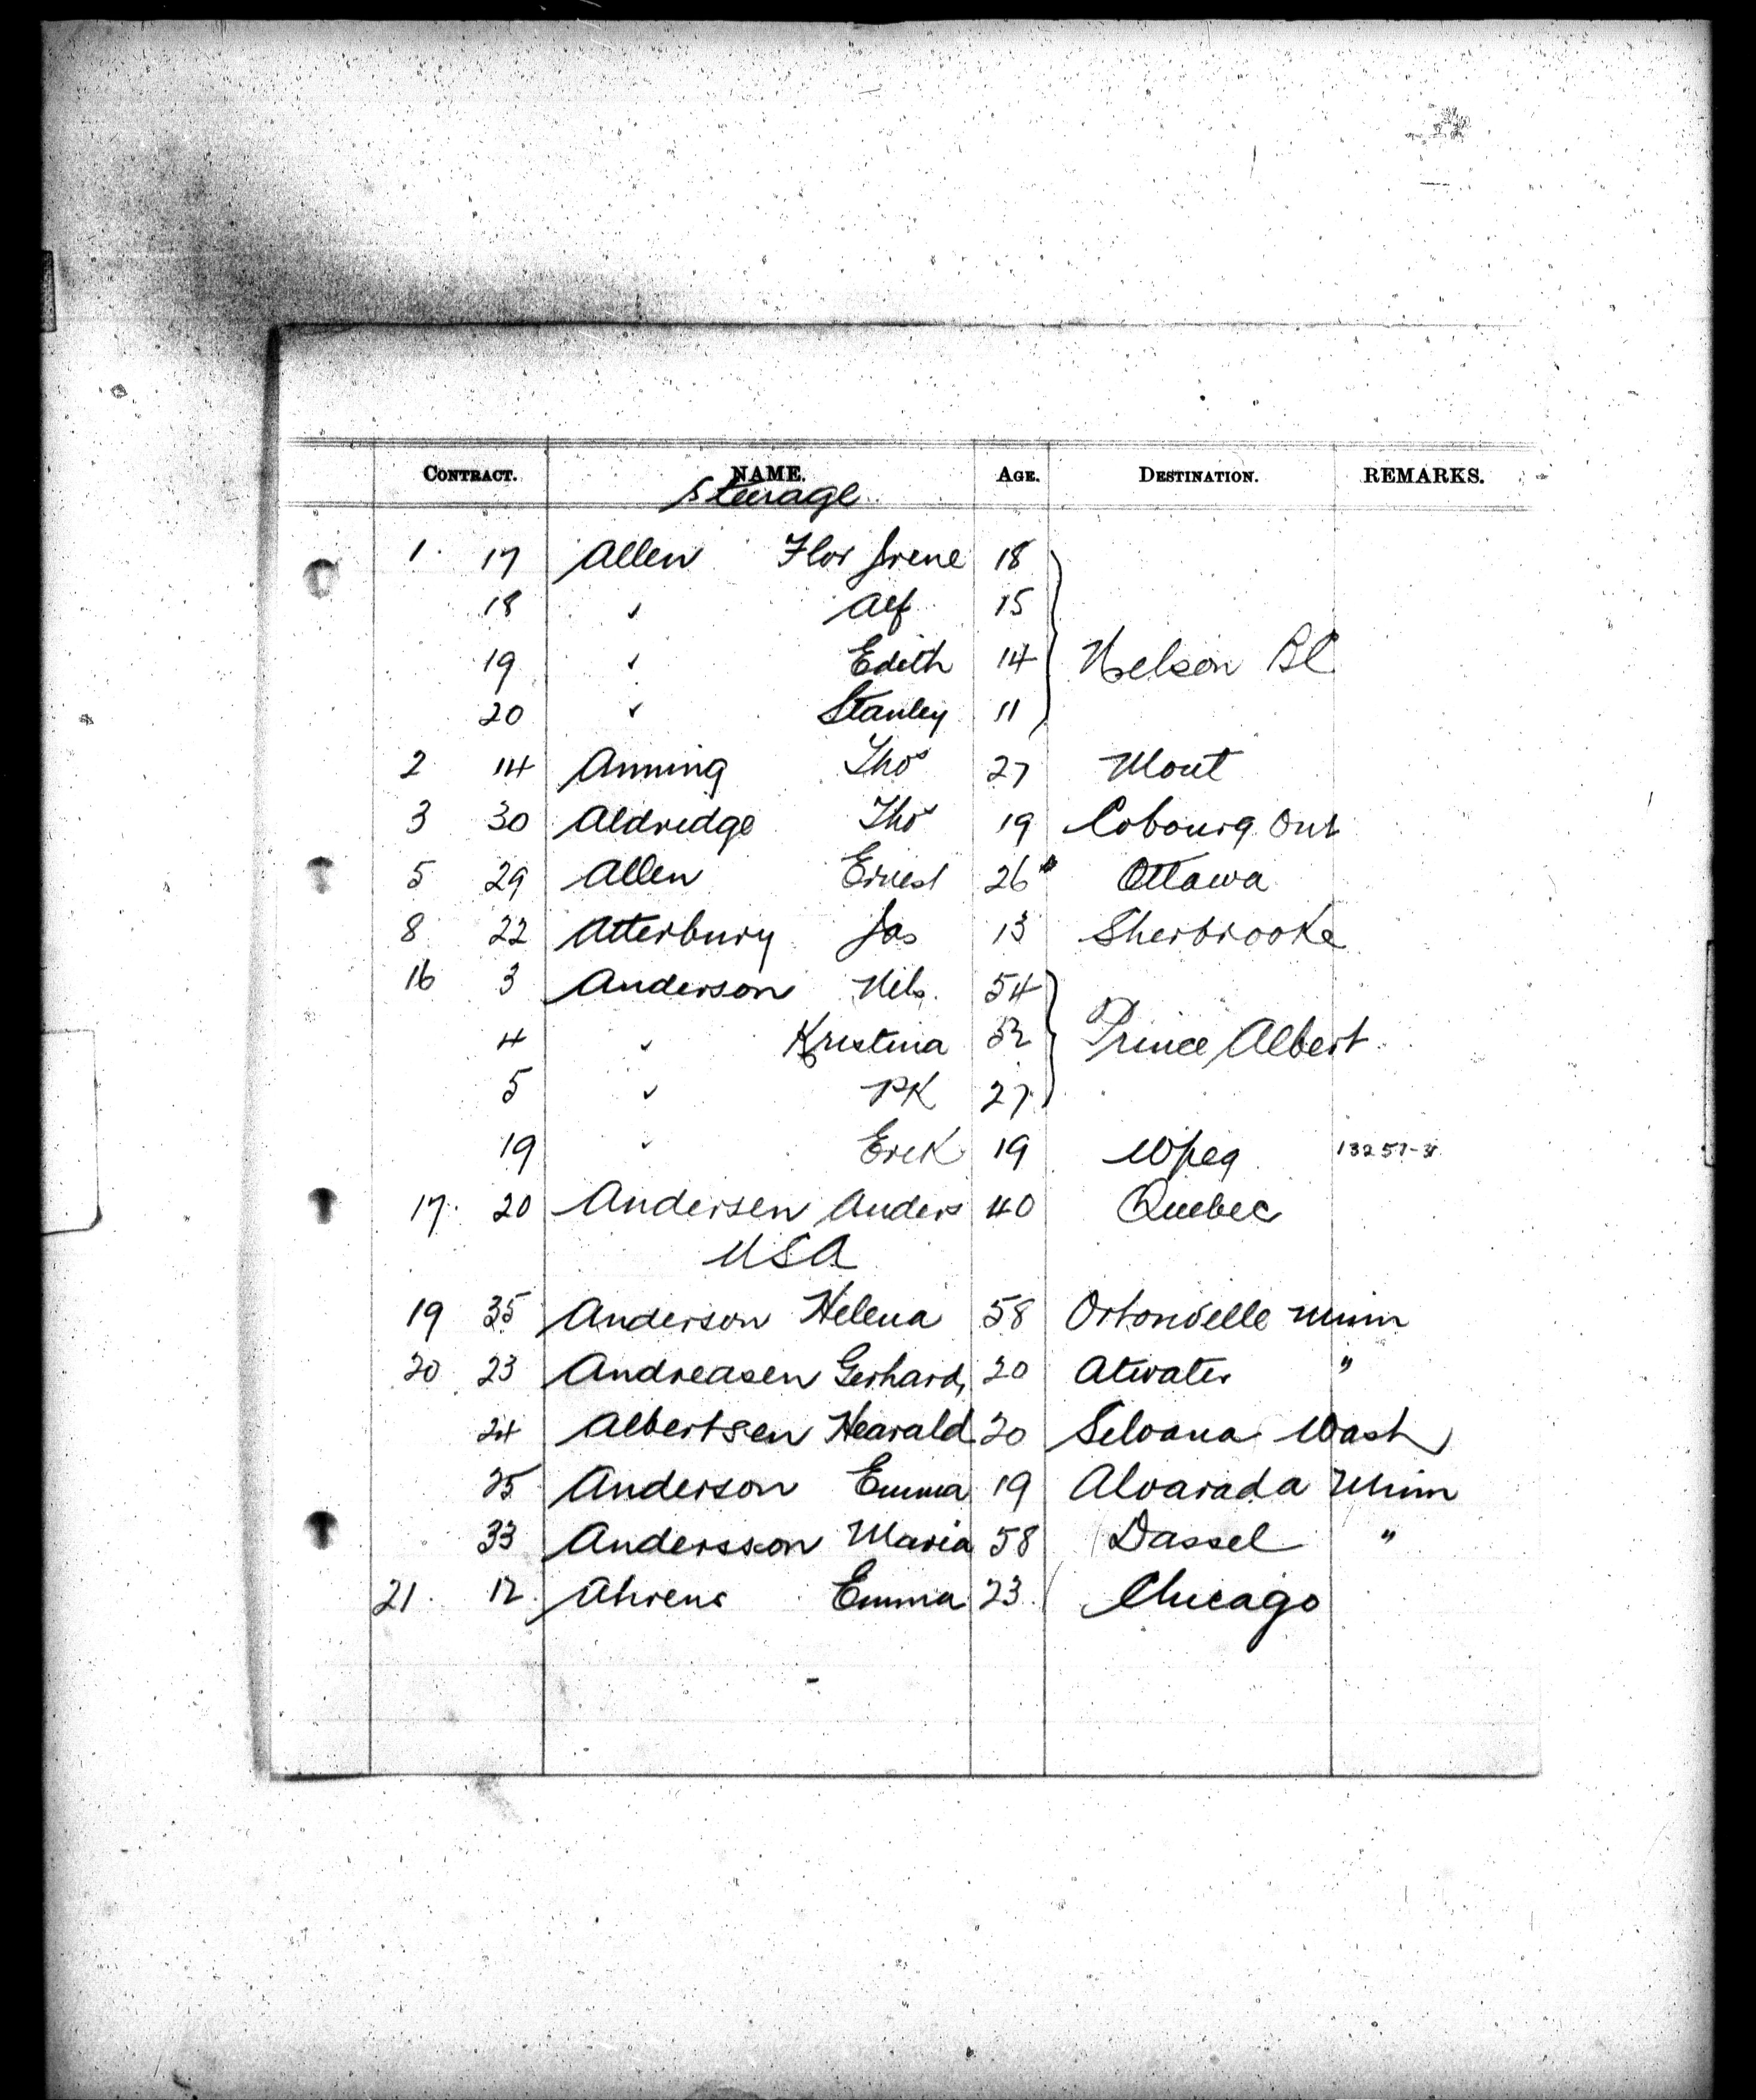 CONTRACT. NAME. AGE. DESTINATION. REMARKS.
Steerage
1 17 Allen Flor Irene 18
18 " Alf 15
19 " Edith 14 Nelson BC
20 " Stanley 11
2 14 Anning Thos 27 Mont
3 30 Aldredge Thos 19 Cobourg Ont
5 29 Allen Ernest 26 Ottawa
8 22 Atterbury Jas 13 Sherbrooke
16 3 Anderson Nils. 54
4 " Kristina 52 Prince Albert
5 " PK 27
19 " Erik 19 Wpeg
17. 20 Andersen Anders 40 Quebec
USA
19 35 Anderson Helena 58 Ortonville Minn
20 23 Andreasen Gerhard 20 Atwater "
24 Albertsen Hearald 20 Silvana Wash
25 Anderson Emma 19 Alvarada Minn
33 Andersson Maria 58 Dassel "
21. 12 Ahrens Emma 23 Chicago